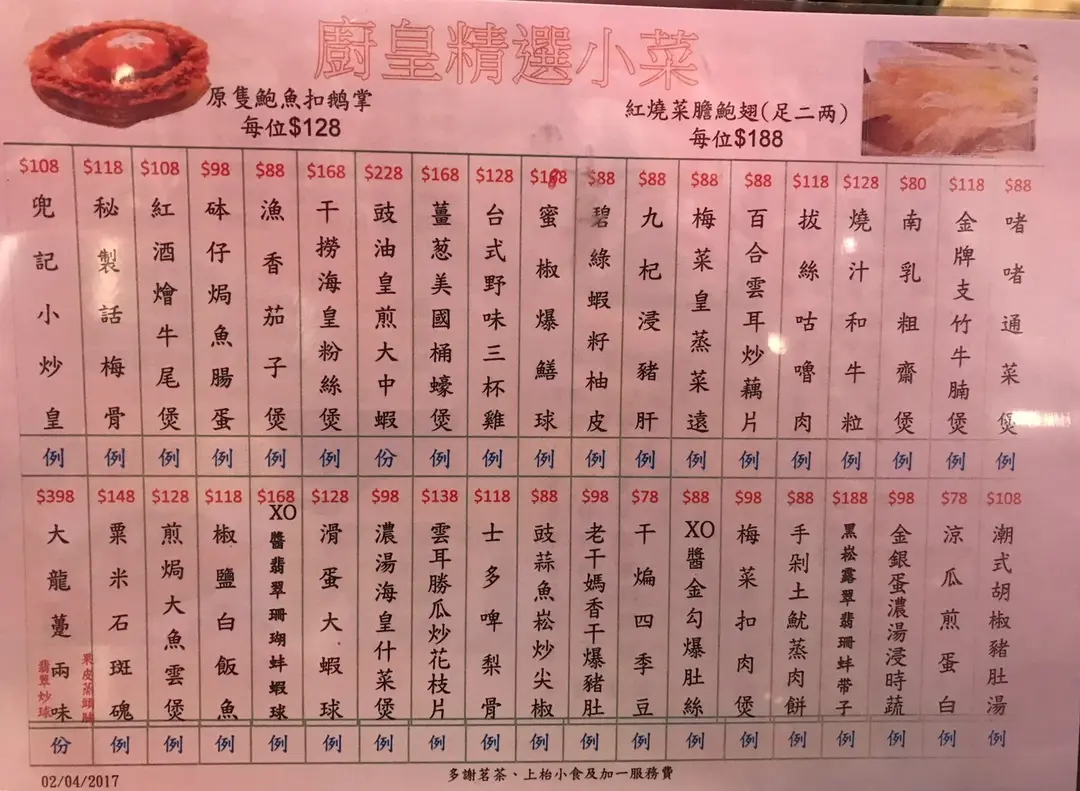 廚皇精選小菜
原隻鮑魚扣鹅掌
每位$128
紅燒菜膽鮑翅(足二两)
每位$188
$108
兜記小炒皇
例
$118
秘製話梅骨
例
$108
紅酒燴牛尾煲
例
$98
砵仔焗魚腸蛋
例
$88
漁香茄子煲
例
$168
干撈海皇粉絲煲
例
$228
豉油皇煎大中蝦
份
$168
薑葱美國桶蠔煲
例
$128
台式野味三杯雞
例
蜜椒爆鱔球
例
$88
碧綠蝦籽柚皮
例
$88
九杞浸豬肝
例
$88
梅菜皇蒸菜遠
例
$88
百合雲耳炒藕片
例
$118
拔絲咕嚕肉
例
$128
燒汁和牛粒
例
$80
南乳粗齋煲
例
$118
金牌支竹牛腩煲
例
$88
啫啫通菜煲
例
$398
大龍躉兩味
翡翠炒球
果皮蒸頭腩
份
$148
粟米石斑魂
例
$128
煎焗大魚雲煲
例
$118
椒鹽白飯魚
例
$168
XO醬翡翠珊瑚蚌蝦球
例
$128
滑蛋大蝦球
例
$98
濃湯海皇什菜煲
例
$138
雲耳勝瓜炒花枝片
例
$118
士多啤梨骨
例
$88
豉蒜魚崧炒尖椒
例
$98
老干媽香干爆豬肚
例
$78
干煸四季豆
例
$88
XO醬金勾爆肚絲
例
$98
梅菜扣肉煲
例
$88
手剁土魷蒸肉餅
例
$188
黑崧露翠翡珊蚌帶子
例
$98
金銀蛋濃湯浸時蔬
例
$78
涼瓜煎蛋白
例
$108
潮式胡椒豬肚湯
例
02/04/2017
多謝茗茶、上枱小食及加一服務費